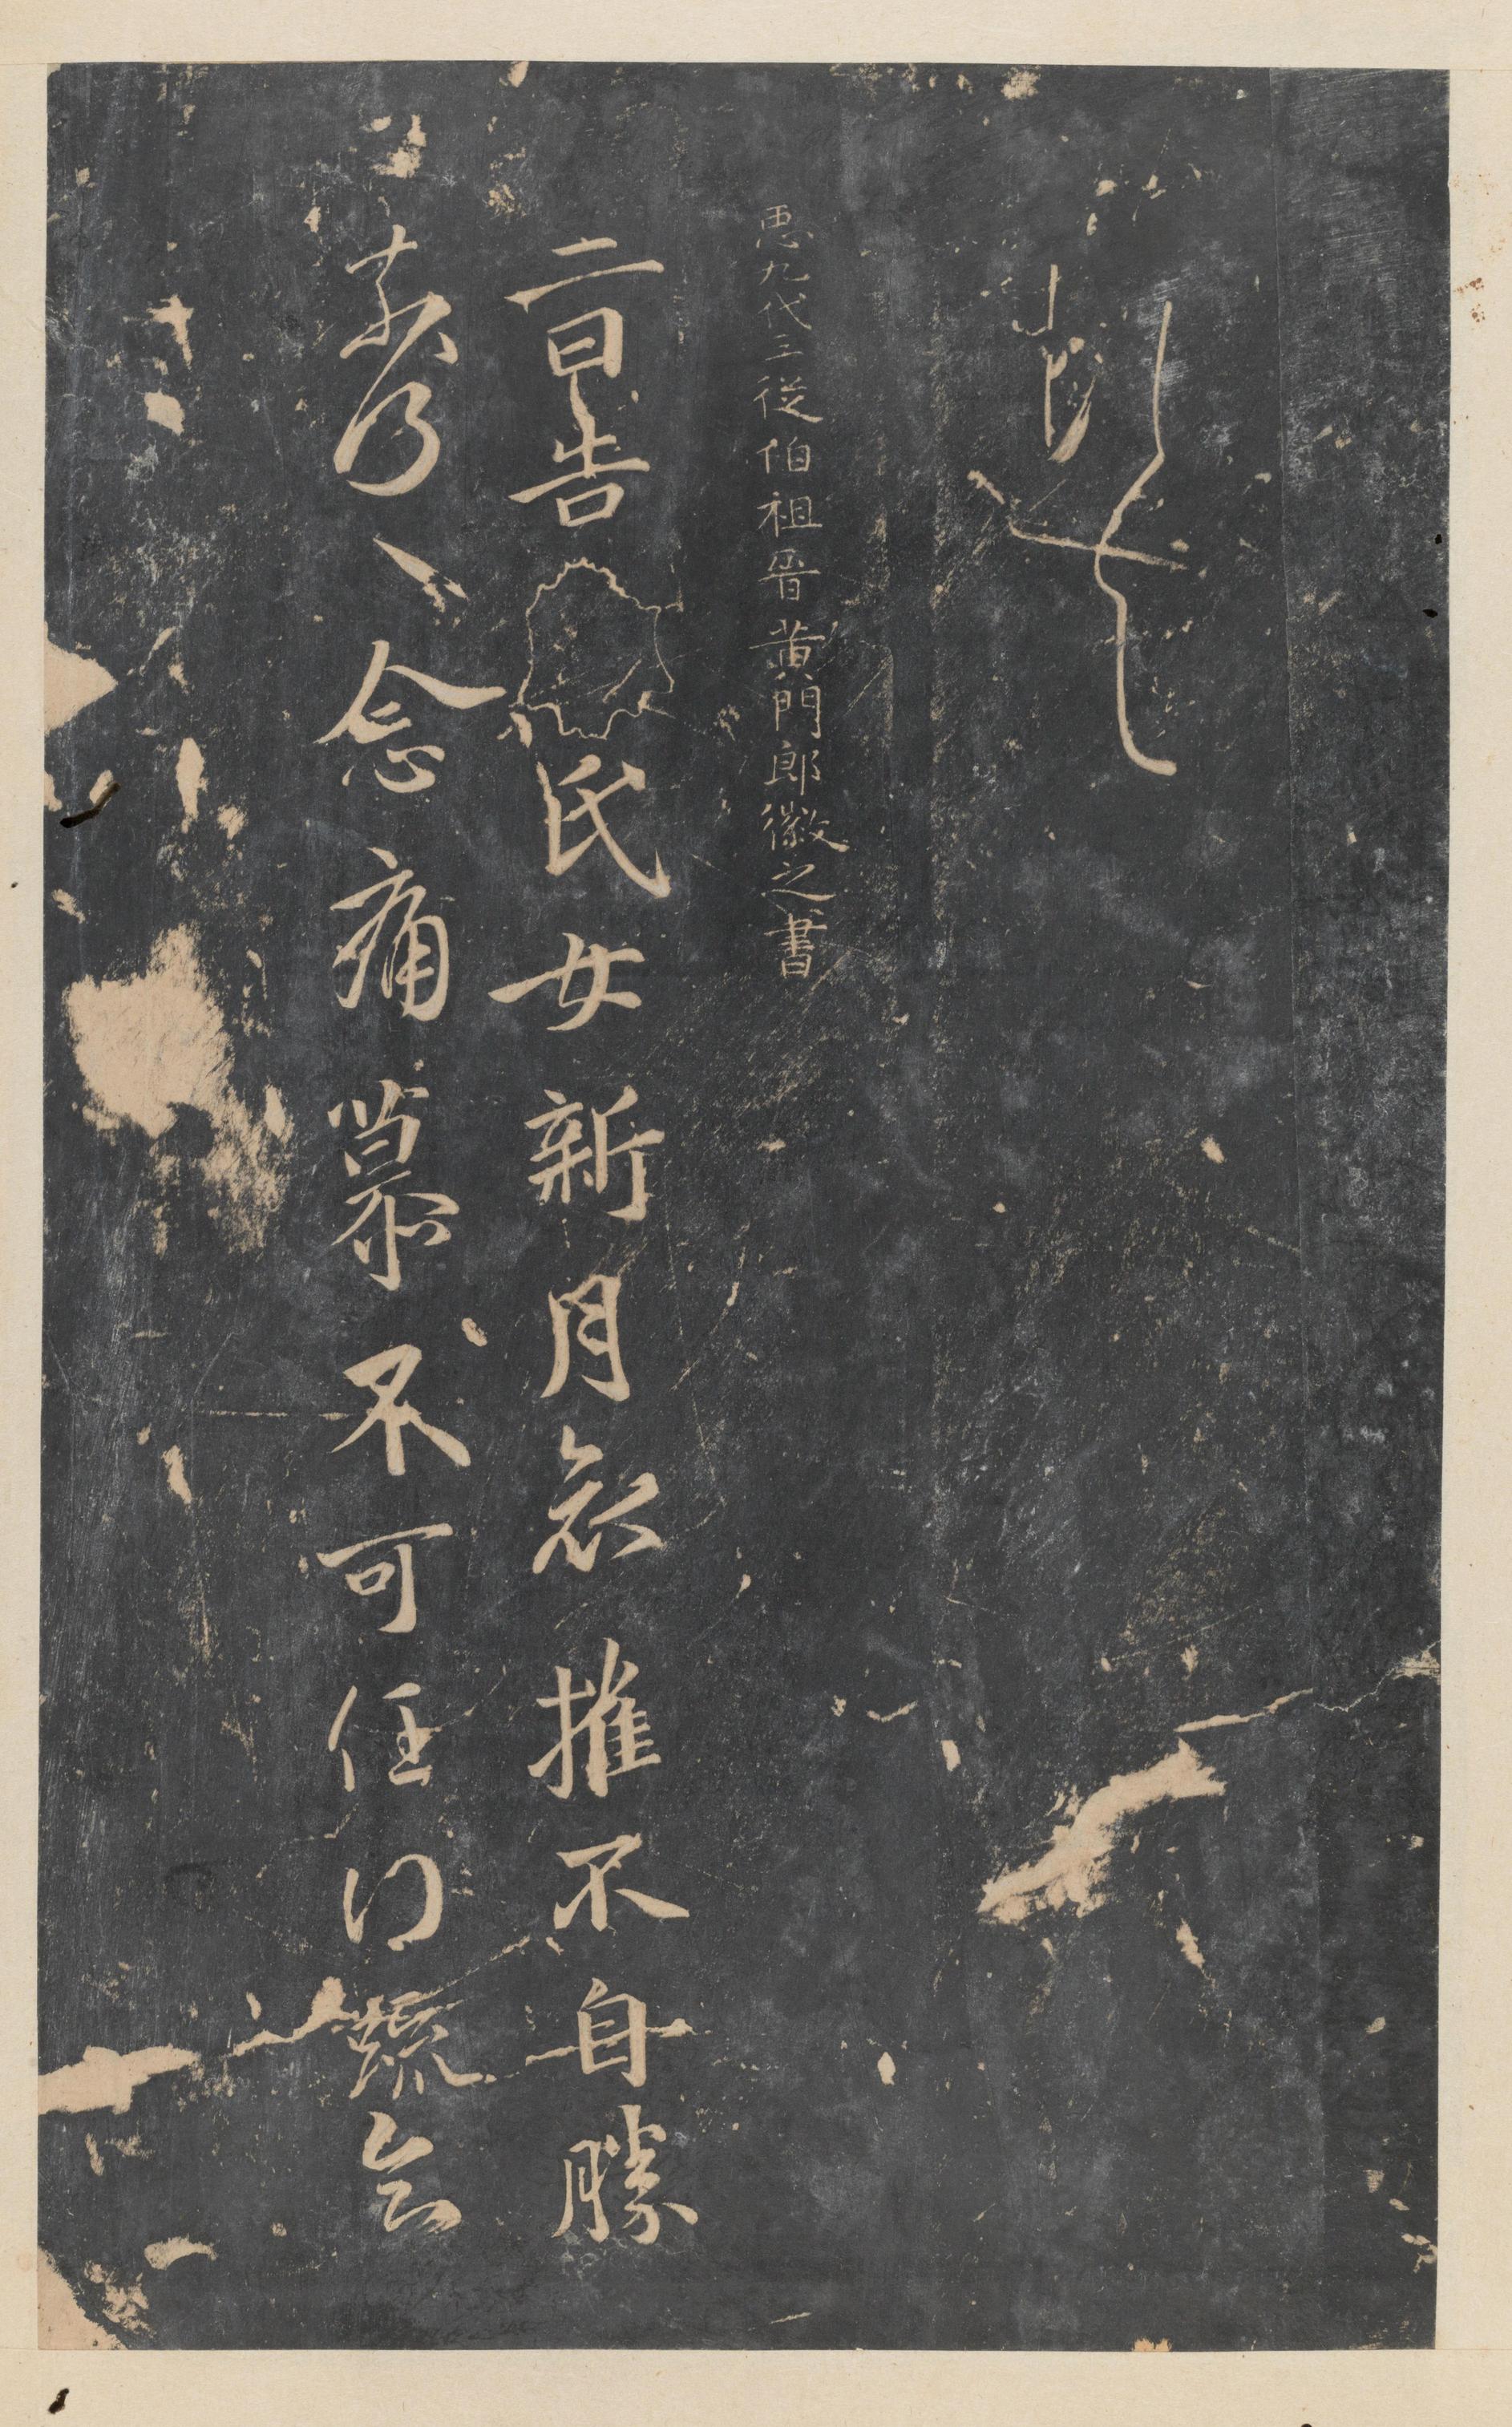 𢘑九代三從伯祖晉黃門郎徽之書
二日告氏女新月哀摧不自勝
奈何〻念痛慕不可任得疏知